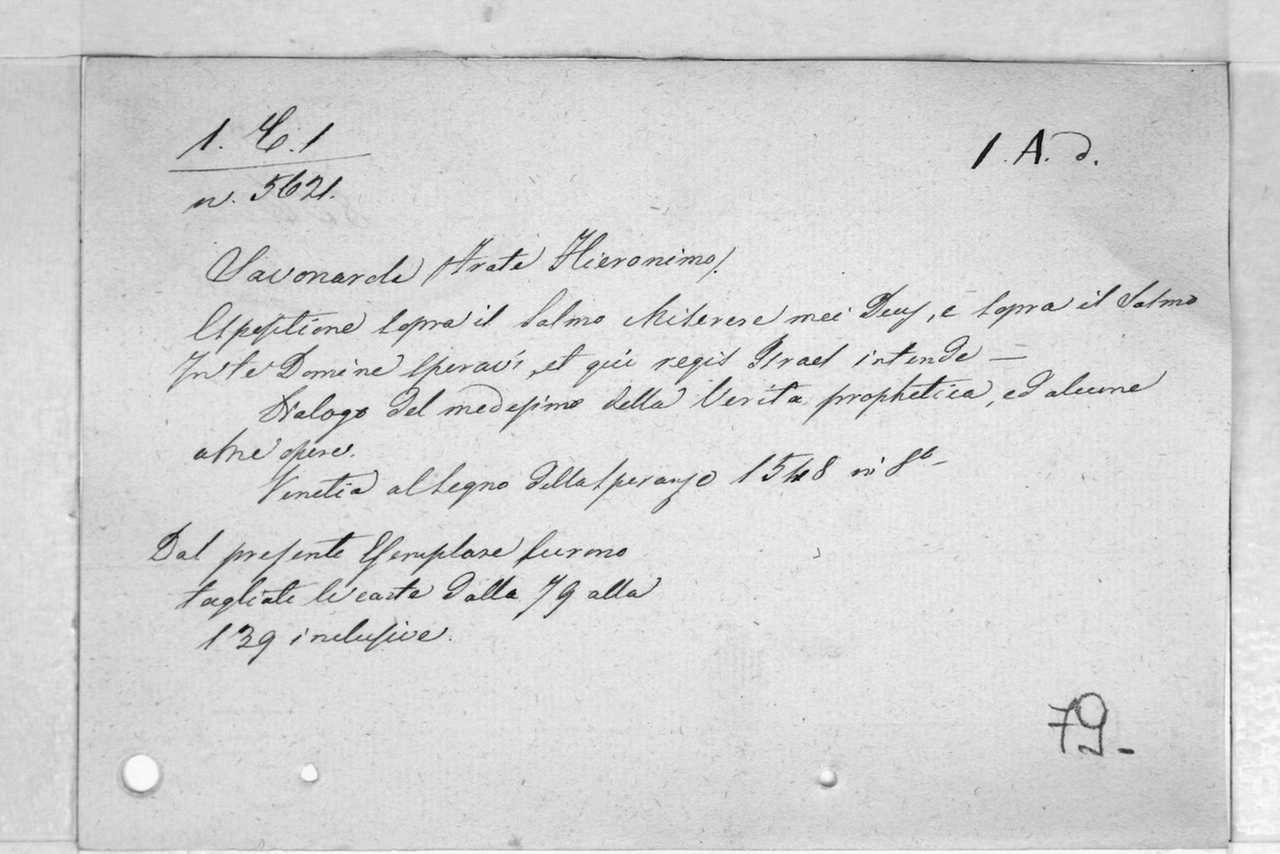 1. C. 1
n. 5621.
1. A. d.
Savonarola (frate Hieronimo).
Espositione sopra il Salmo Miserere mei Deus, e sopra il Salmo
In te Domine speravi, et qui regis Israel intende —
Dialogo del medesimo della Verita prophetica, ed alcune
altre opere.
Venetia al segno della Speranza 1548 in 8º
Dal presente Esemplare furono
tagliate le carte dalla 79 alla
139 inclusive.
79-